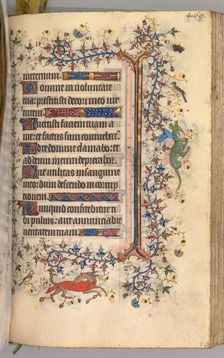 meternum.
Domine in voluntate
tua: prestitisti decori meo vir
tutem.
Avertisti faciem tuam a
me: et factus sum conturbat
Ad te domine clamabo: et
ad deum meum deprecabor.
Que utilitas in sanguine
meo: dum descendo in corrupti
onem.
Nunquid confitebitur ti
bi pulvis: aut annunciabit
veritatem tuam